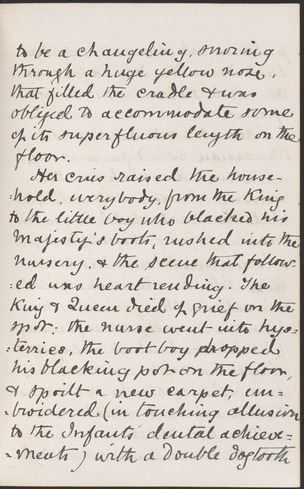 to be a changeling, snoring
through a huge yellow nose,
that filled the cradle & was
obliged to accommodate some
of its superfluous length on the
floor.
Her cries raised the house-
-hold, everybody, from the King
to the little boy who blacked his
Majesty's boots, rushed into the
nursery, & the scene that follow-
-ed was heart rending. The
King & Queen died of grief on the
spot: the nurse went into hys-
-terics, the boot boy dropped
his blacking pot on the floor,
& spoilt a new carpet, em-
-broidered (in touching allusion
to the Infants' dental achieve-
-ments) with a double dogtooth